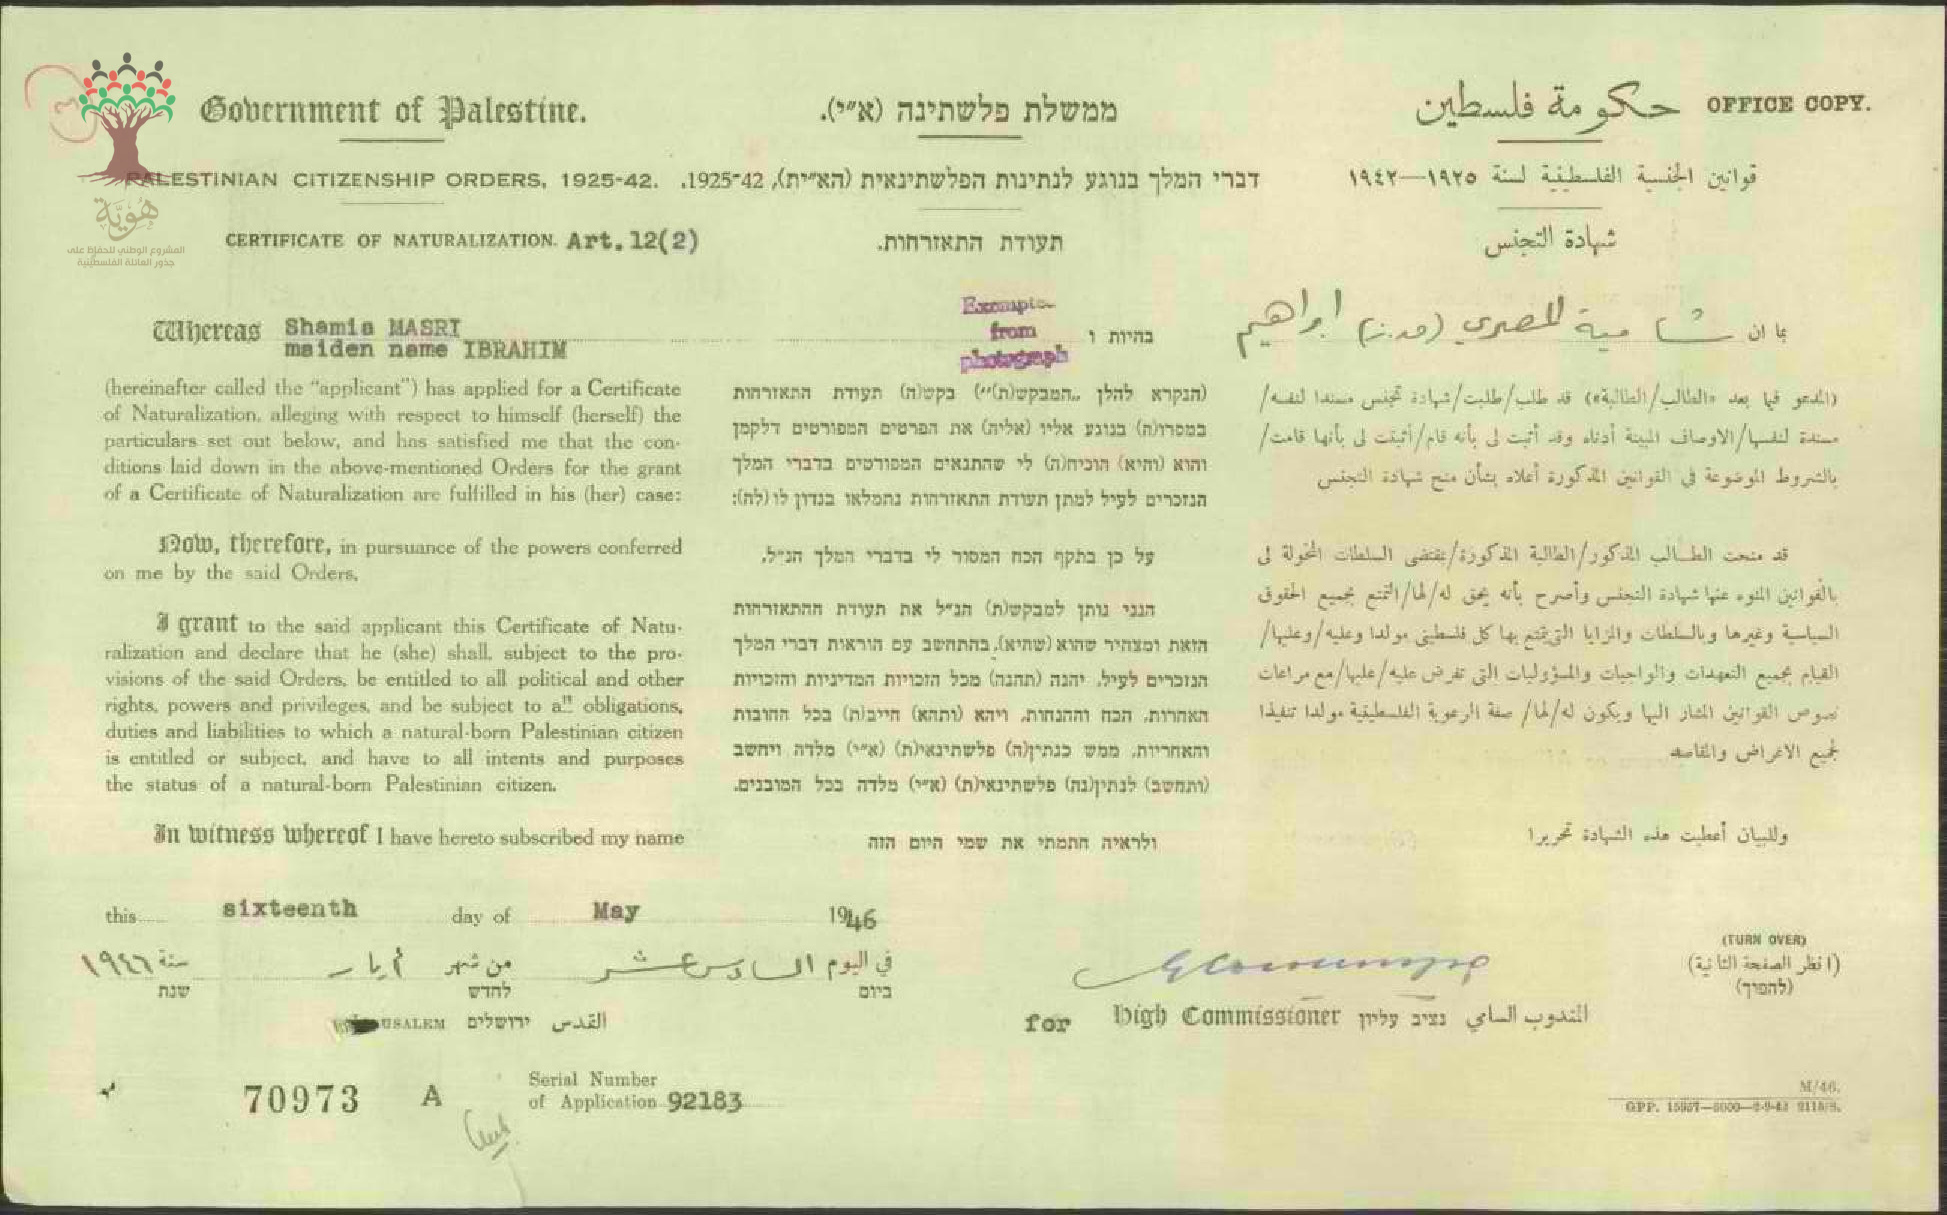 Government of Palestine.
PALESTINIAN CITIZENSHIP ORDERS, 1925-42.
CERTIFICATE OF NATURALIZATION. Art. 12(2)
ממשלת פלשתינה (א״י).
דברי המלך בנוגע לנתינות הפלשתינאית (הא״ית), 1925-42.
תעודת התאזרחות.
حكومة فلسطين
OFFICE COPY.
قوانين الجنسية الفلسطينية لسنة ١٩٢٥—١٩٤٢
شهادة التجنس
هُوِيَّة
المشروع الوطني للحفاظ على
جذور العائلة الفلسطينية
Whereas Shamia MASRI
maiden name IBRAHIM
(hereinafter called the "applicant") has applied for a Certificate
of Naturalization, alleging with respect to himself (herself) the
particulars set out below, and has satisfied me that the con-
ditions laid down in the above-mentioned Orders for the grant
of a Certificate of Naturalization are fulfilled in his (her) case:
Now, therefore, in pursuance of the powers conferred
on me by the said Orders,
I grant to the said applicant this Certificate of Natu-
ralization and declare that he (she) shall, subject to the pro-
visions of the said Orders, be entitled to all political and other
rights, powers and privileges, and be subject to all obligations,
duties and liabilities to which a natural-born Palestinian citizen
is entitled or subject, and have to all intents and purposes
the status of a natural-born Palestinian citizen.
In witness whereof I have hereto subscribed my name
Exempted
from
photograph
בהיות ו
(הנקרא להלן „המבקש(ת)״) בקש(ה) תעודת התאזרחות
במסרו(ה) בנוגע אליו (אליה) את הפרטים המפורטים דלקמן
והוא (והיא) הוכיח(ה) לי שהתנאים המפורטים בדברי המלך
הנזכרים לעיל למתן תעודת התאזרחות נתמלאו בנדון לו (לה):
על כן בתקף הכח המסור לי בדברי המלך הנ״ל,
הנני נותן למבקש(ת) הנ״ל את תעודת ההתאזרחות
הזאת ומצהיר שהוא (שהיא), בהתחשב עם הוראות דברי המלך
הנזכרים לעיל, יהנה (תהנה) מכל הזכויות המדיניות והזכויות
האחרות, הכח וההנחות, ויהא (ותהא) חייב(ת) בכל החובות
והאחריות, ממש כנתין(ה) פלשתינאי(ת) (א״י) מלדה ויחשב
(ותחשב) לנתין(נה) פלשתינאי(ת) (א״י) מלדה בכל המובנים.
ולראיה חתמתי את שמי היום הזה
بما ان شامية المصري (م.ز) ابراهيم
(المدعو فيما بعد «الطالب/الطالبة») قد طلب/طلبت/شهادة تجنس مسندا لنفسه/
مسندة لنفسها/الاوصاف المبينة أدناه وقد أثبت لى بأنه قام/أثبتت لى بأنها قامت/
بالشروط الموضوعة في القوانين المذكورة أعلاه بشأن منح شهادة التجنس
قد منحت الطالب المذكور/الطالبة المذكورة/بمقتضى السلطات المخولة لى
بالقوانين المنوه عنها شهادة التجنس وأصرح بأنه يحق له/لها/التمتع بجميع الحقوق
السياسية وغيرها وبالسلطات والمزايا التى يتمتع بها كل فلسطينى مولدا وعليه/وعليها/
القيام بجميع التعهدات والواجبات والمسؤوليات التى تفرض عليه/عليها/مع مراعات
نصوص القوانين المشار اليها ويكون له/لها/ صفة الرعوية الفلسطينية مولدا تنفيذا
لجميع الاغراض والمقاصد
وللبيان أعطيت هذه الشهادة تحريرا
this sixteenth day of May 1946
في اليوم السادس عشر من شهر أيار سنة ١٩٤٦
ביום לחדש שנת
القدس ירושלים JERUSALEM
for High Commissioner נציב עליון المندوب السامي
(TURN OVER)
(انظر الصفحة الثانية)
(להפוך)
70973 A
Serial Number
of Application 92183
M/46.